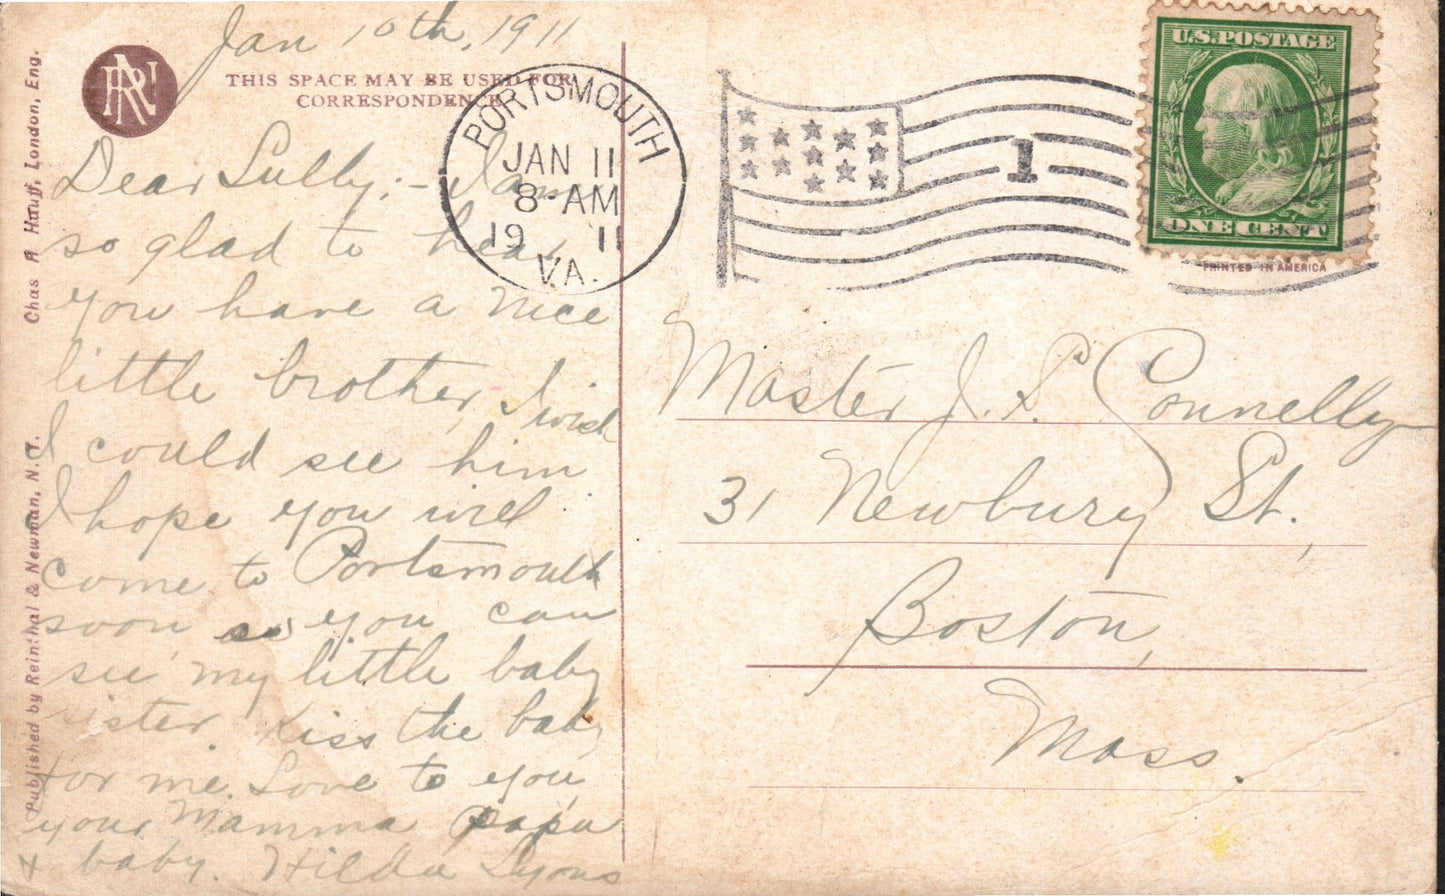 Jan 10th, 1911
THIS SPACE MAY BE USED FOR
CORRESPONDENCE
Dear Sully:- I am
so glad to hear
you have a nice
little brother, I wish
I could see him
I hope you will
come to Portsmouth
soon so you can
see my little baby
sister. Kiss the baby
for me. Love to you,
your Mamma papa
& baby. Hilda Lyons
Chas A Hauff, London, Eng.
Published by Reinthal & Newman, N.Y.
PORTSMOUTH
JAN 11
8-AM
19 11
VA.
1
U.S. POSTAGE
ONE CENT
PRINTED IN AMERICA
Master J. S. Connelly
31 Newbury St.,
Boston,
Mass.